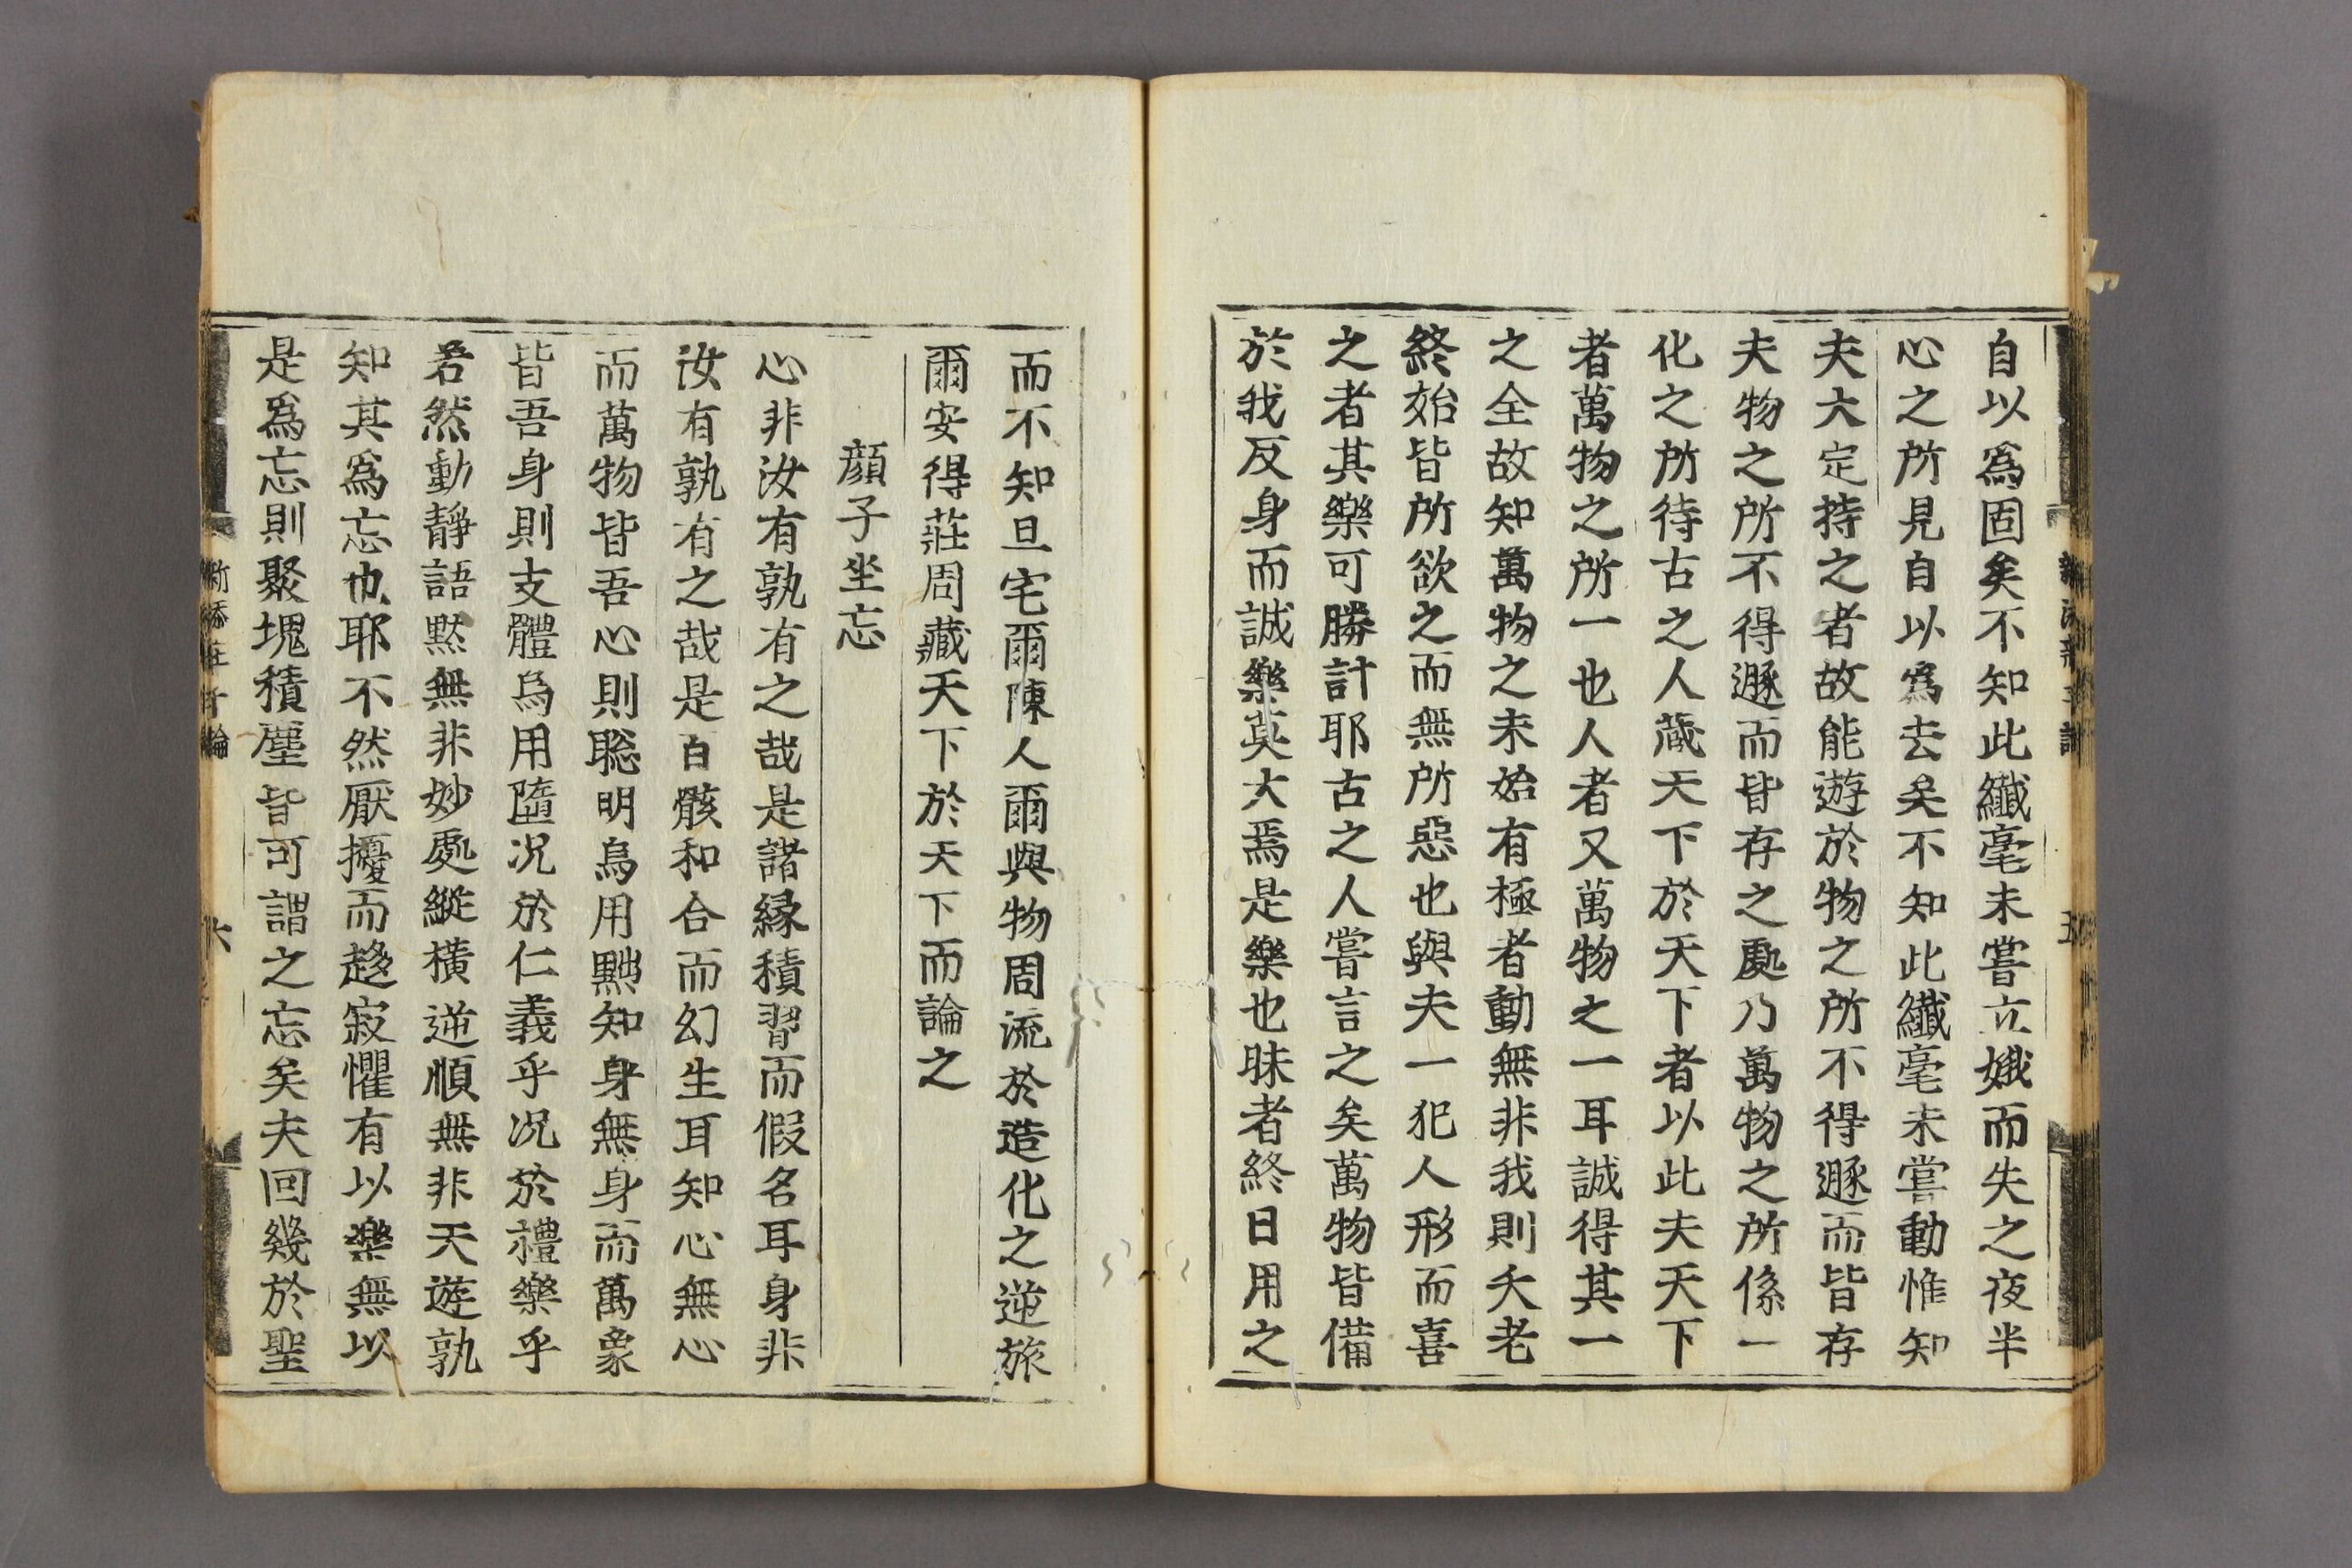 自以爲固矣不知此纖毫未嘗立娥而失之夜半
心之所見自以爲去矣不知此纖毫未嘗動惟知
夫大定持之者故能遊於物之所不得遯而皆存
夫物之所不得遯而皆存之處乃萬物之所係一
化之所待古之人藏天下於天下者以此夫天下
者萬物之所一也人者又萬物之一耳誠得其一
之全故知萬物之未始有極者動無非我則夭老
終始皆所欲之而無所惡也與夫一犯人形而喜
之者其樂可勝計耶古之人嘗言之矣萬物皆備
於我反身而誠樂莫大焉是樂也昧者終日用之
而不知旦宅爾陳人爾與物周流於造化之逆旅
爾安得莊周藏天下於天下而論之
顏子坐忘
心非汝有孰有之哉是諸緣積習而假名耳身非
汝有孰有之哉是百骸和合而幻生耳知心無心
而萬物皆吾心則聡明烏用黜知身無身而萬象
皆吾身則支體烏用隳况於仁義乎况於禮樂乎
若然動靜語默無非妙處縱橫逆順無非天遊孰
知其爲忘也耶不然厭擾而趍寂懼有以樂無以
是爲忘則聚塊積塵皆可謂之忘矣夫回幾於聖
新添莊子論
六